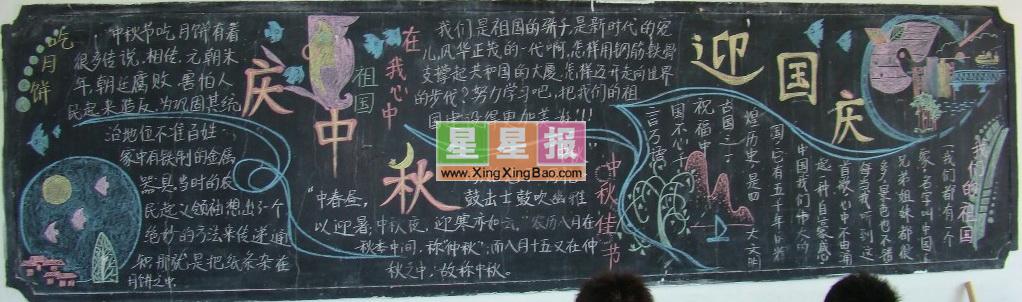 吃月饼
中秋节吃月饼有着
很多传说,相传,元朝末
年,朝廷腐败,害怕人
民起来造反,为巩固其统
治地位不准百姓
家中有铁制的金属
器具,当时的农
民起义领袖想出了个
绝妙的方法来传递通
知,那就是把纸条杂在
月饼之中
庆中秋
祖国
在我心中
我们是祖国的骄子,是新时代的宠
儿,风华正茂的一代啊,怎样用钢筋铁骨
支撑起共和国的大厦,怎样迈开走向世界
的步伐?努力学习吧,把我们的祖
国建设得更加美好!!!
星星报
www.XingXingBao.com
中秋佳节
"中春昼,
鼓击土鼓吹幽雅
以迎暑;中秋夜,迎寒亦如云,"农历八月在
秋季中间,称"仲秋";而八月十五又在仲
秋之中,故称中秋。
迎国庆
我们的祖国
我们都有一个
家,名字叫中国
兄弟姐妹都很
多,景色也不错
每当我听到这
首歌,心中不由涌
起一种自豪感
中国我们伟大的
国,它有五千年的辉
煌历史,是四大文明
古国之一
祝福中
国不心千
言万语